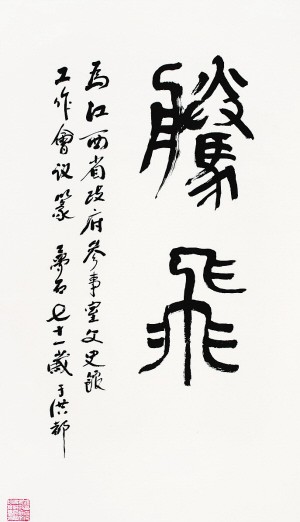 騰飛
為江西省政府參事室文史館
工作會议篆 石七十一歲于洪都